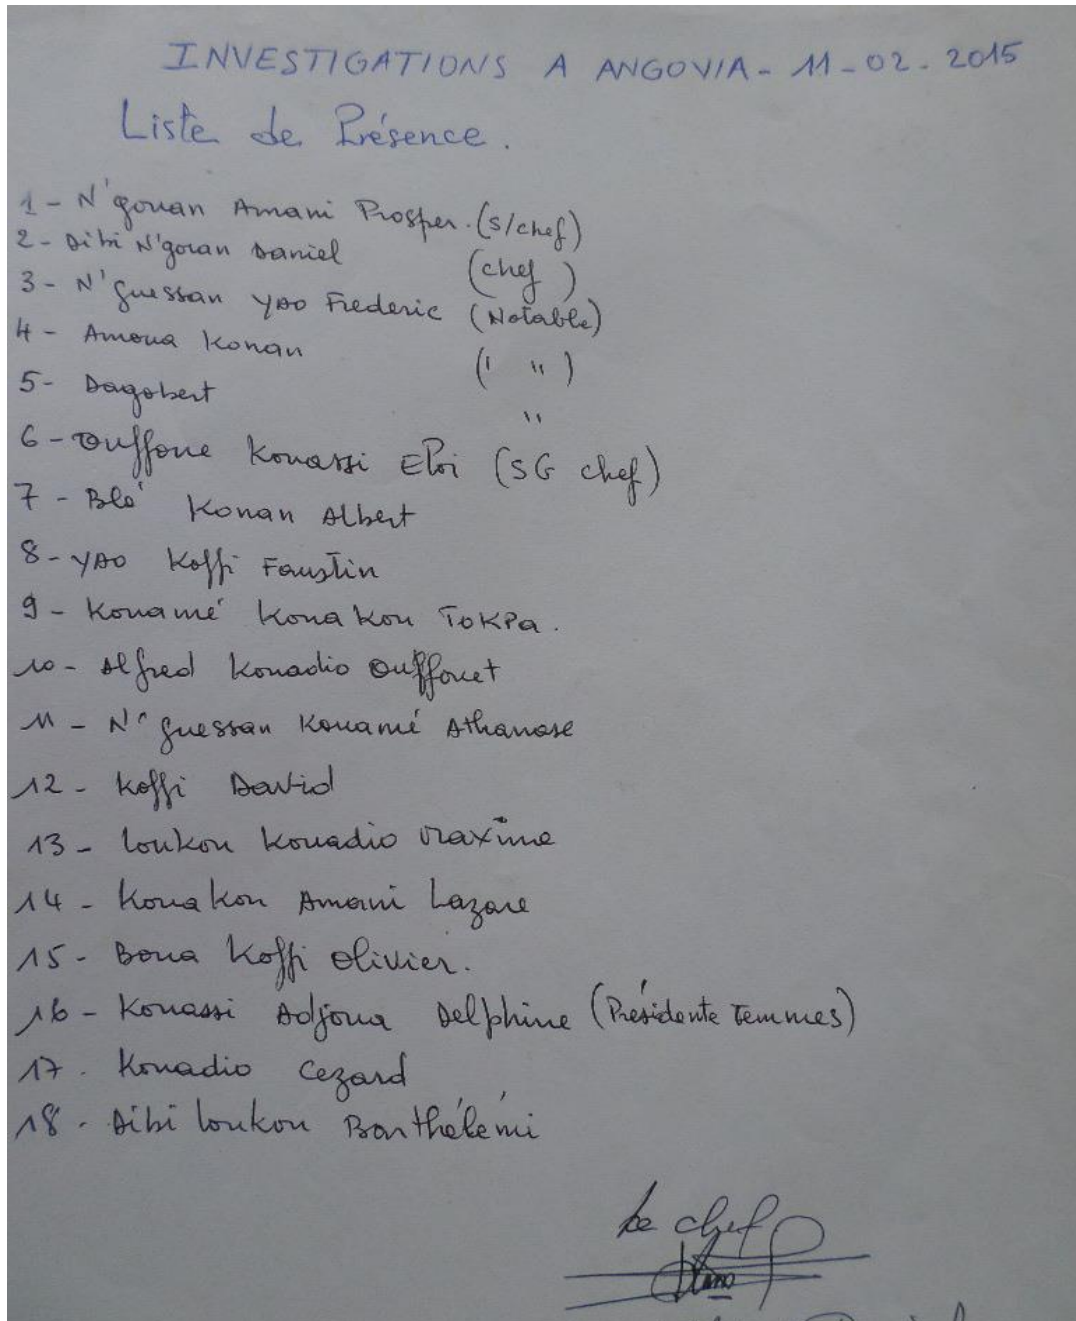 INVESTIGATIONS A ANGOVIA - 11-02-2015
Liste de Présence.
1 - N'gouan Amani Prosper. (S/chef)
2 - Dibi N'goran Daniel (chef)
3 - N'guessan YAO Frederic (Notable)
4 - Amoua Konan (' ")
5 - Dagobert "
6 - Ouffoue Kouassi Eloi (SG chef)
7 - Blé Konan Albert
8 - YAO Koffi Faustin
9 - Kouamé Kouakou TOKPa.
10 - Alfred Kouadio Ouffouet
11 - N'guessan Kouamé Athanase
12 - Koffi David
13 - Loukou Kouadio Maxime
14 - Kouakou Amani Lazare
15 - Boua Koffi Olivier.
16 - Kouassi Adjoua Delphine (Présidente Femmes)
17. Kouadio Cezard
18. Dibi Loukou Barthélémi
Le chef